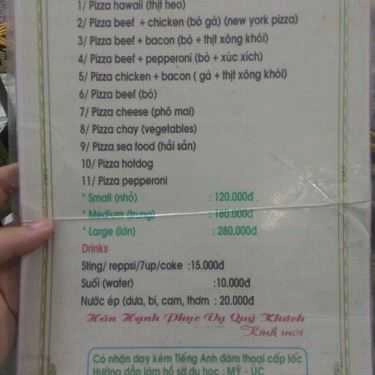 1/ Pizza hawaii (thịt heo)
2/ Pizza beef + chicken (bò gà) (new york pizza)
3/ Pizza beef + bacon (bò + thịt xông khói)
4/ Pizza beef + pepperoni (bò + xúc xích)
5/ Pizza chicken + bacon ( gà + thịt xông khói)
6/ Pizza beef (bò)
7/ Pizza cheese (phô mai)
8/ Pizza chay (vegetables)
9/ Pizza sea food (hải sản)
10/ Pizza hotdog
11/ Pizza pepperoni
* Small (nhỏ) : 120.000đ
* Medium (trung) : 160.000đ
* Large (lớn) : 280.000đ
Drinks
Sting/ reppsi/7up/coke :15.000đ
Suối (water) :10.000đ
Nước ép (dưa, bí, cam, thơm : 20.000đ
Hân Hạnh Phục Vụ Quý Khách
Kính mời
Có nhận dạy kèm Tiếng Anh đàm thoại cấp tốc
Hướng dẫn làm hồ sơ du học - MỸ - ÚC